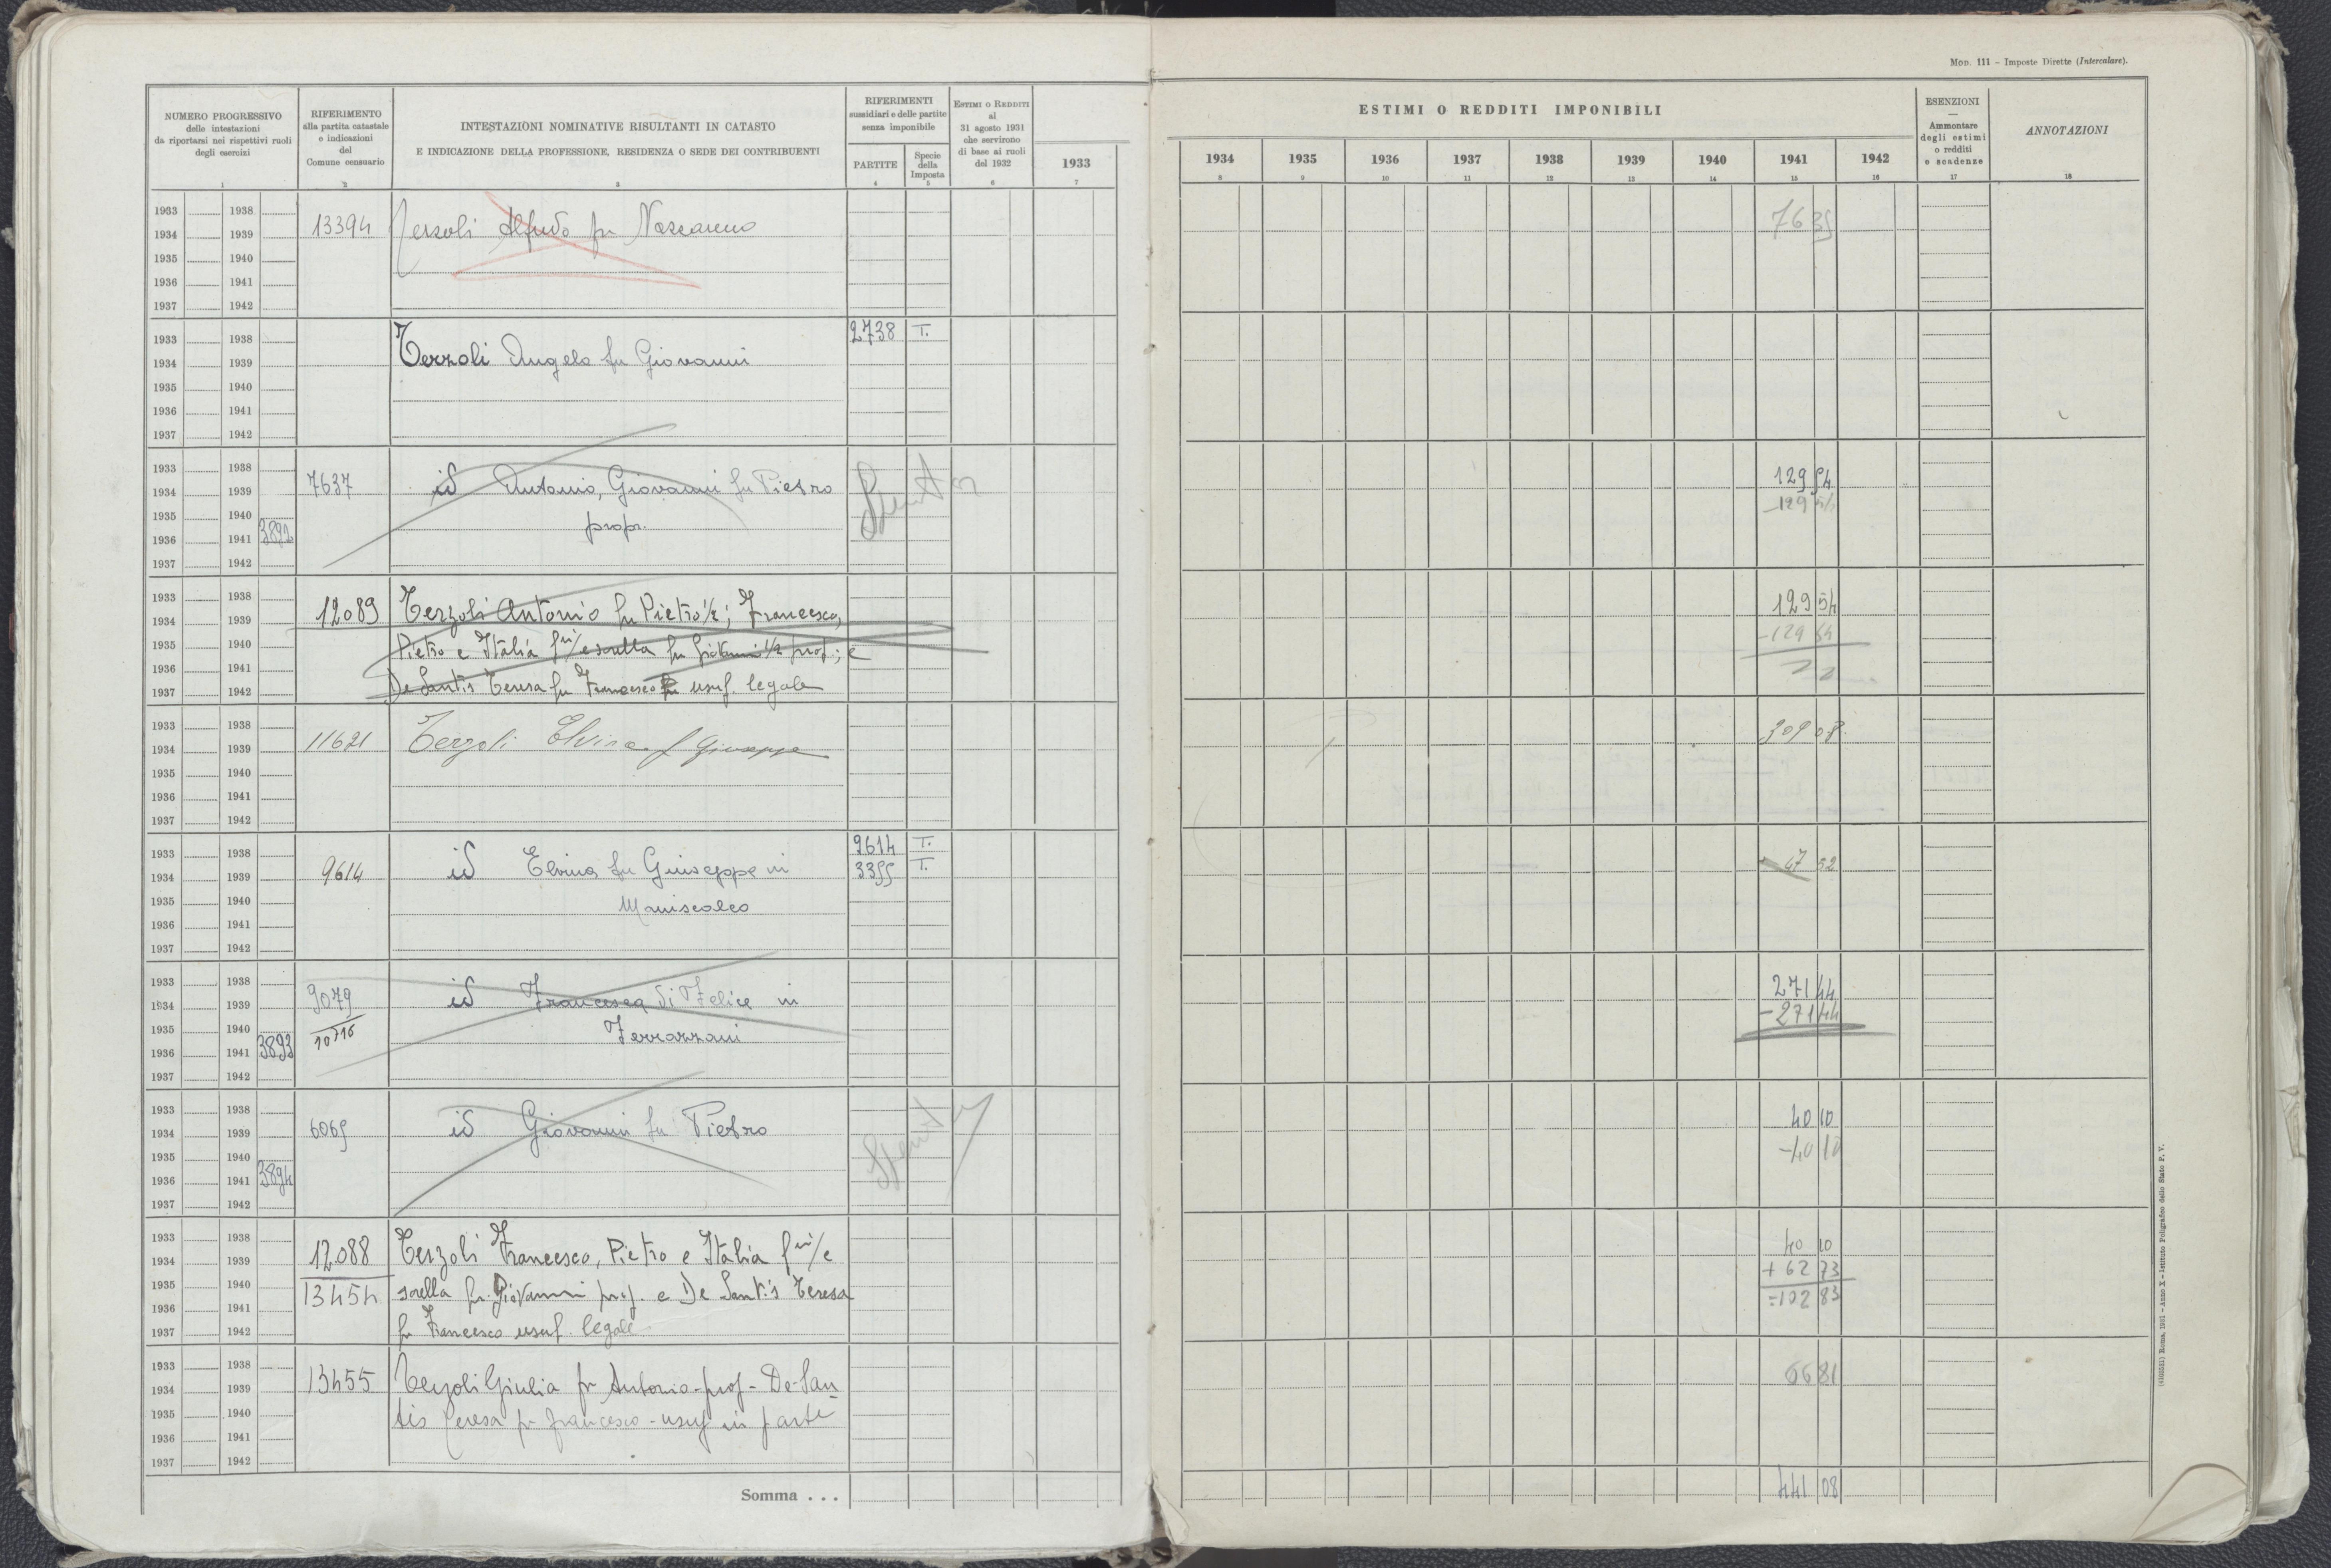 MOD. 111 – Imposte Dirette (Intercalare).
NUMERO PROGRESSIVO
delle intestazioni
da riportarsi nei rispettivi ruoli
degli esercizi
1
RIFERIMENTO
alla partita catastale
e indicazioni
del
Comune censuario
2
INTESTAZIONI NOMINATIVE RISULTANTI IN CATASTO
E INDICAZIONE DELLA PROFESSIONE, RESIDENZA O SEDE DEI CONTRIBUENTI
3
RIFERIMENTI
sussidiari e delle partite
senza imponibile
PARTITE
4
Specie
della
Imposta
5
ESTIMI O REDDITI
al
31 agosto 1931
che servirono
di base ai ruoli
del 1932
6
1933
7
ESTIMI O REDDITI IMPONIBILI
1934 1935 1936 1937 1938 1939 1940 1941 1942
8 9 10 11 12 13 14 15 16
ESENZIONI
—
Ammontare
degli estimi
o redditi
e scadenze
17
ANNOTAZIONI
18
1933 1938
1934 1939 13394 Terzoli Alfredo fu Nazzareno 76 35
1935 1940
1936 1941
1937 1942
1933 1938 2738 T.
1934 1939 Terzoli Angelo fu Giovanni
1935 1940
1936 1941
1937 1942
1933 1938
1934 1939 7637 id Antonio, Giovanni fu Pietro 129 54
1935 1940 propr. -129 54
1936 1941 3892
1937 1942
1933 1938
1934 1939 12089 Terzoli Antonio fu Pietro 1/2; Francesco, 129 54
1935 1940 Pietro e Italia f.lli e sorella fu Giovanni 1/2 prop.; e -129 54
1936 1941
1937 1942 De Santis Teresa fu Francesco usuf. legale
1933 1938
1934 1939 11621 Terzoli Elvira f Giuseppe 309 08
1935 1940
1936 1941
1937 1942
1933 1938 9614 T.
1934 1939 9614 id Elvira fu Giuseppe in 3355 T. 47 52
1935 1940 Maniscalco
1936 1941
1937 1942
1933 1938
1934 1939 9079 id Francesca di Felice in 271 44
1935 1940 10716 Ferrazzani -271 44
1936 1941 3893
1937 1942
1933 1938
1934 1939 6065 id Giovanni fu Pietro 40 10
1935 1940 -40 10
1936 1941 3894
1937 1942
1933 1938
1934 1939 12088 Terzoli Francesco, Pietro e Italia f.lli e 40 10
1935 1940 13454 sorella fu Giovanni prop. e De Santis Teresa + 62 73
1936 1941 =102 83
1937 1942 fu Francesco usuf. legale
1933 1938
1934 1939 13455 Terzoli Giulia fu Antonio - prop - De San 66 81
1935 1940 tis Teresa fu Francesco - usuf in parte
1936 1941
1937 1942
Somma . . . 441 08
(4105531) Roma, 1931 - Anno X - Istituto Poligrafico dello Stato P. V.